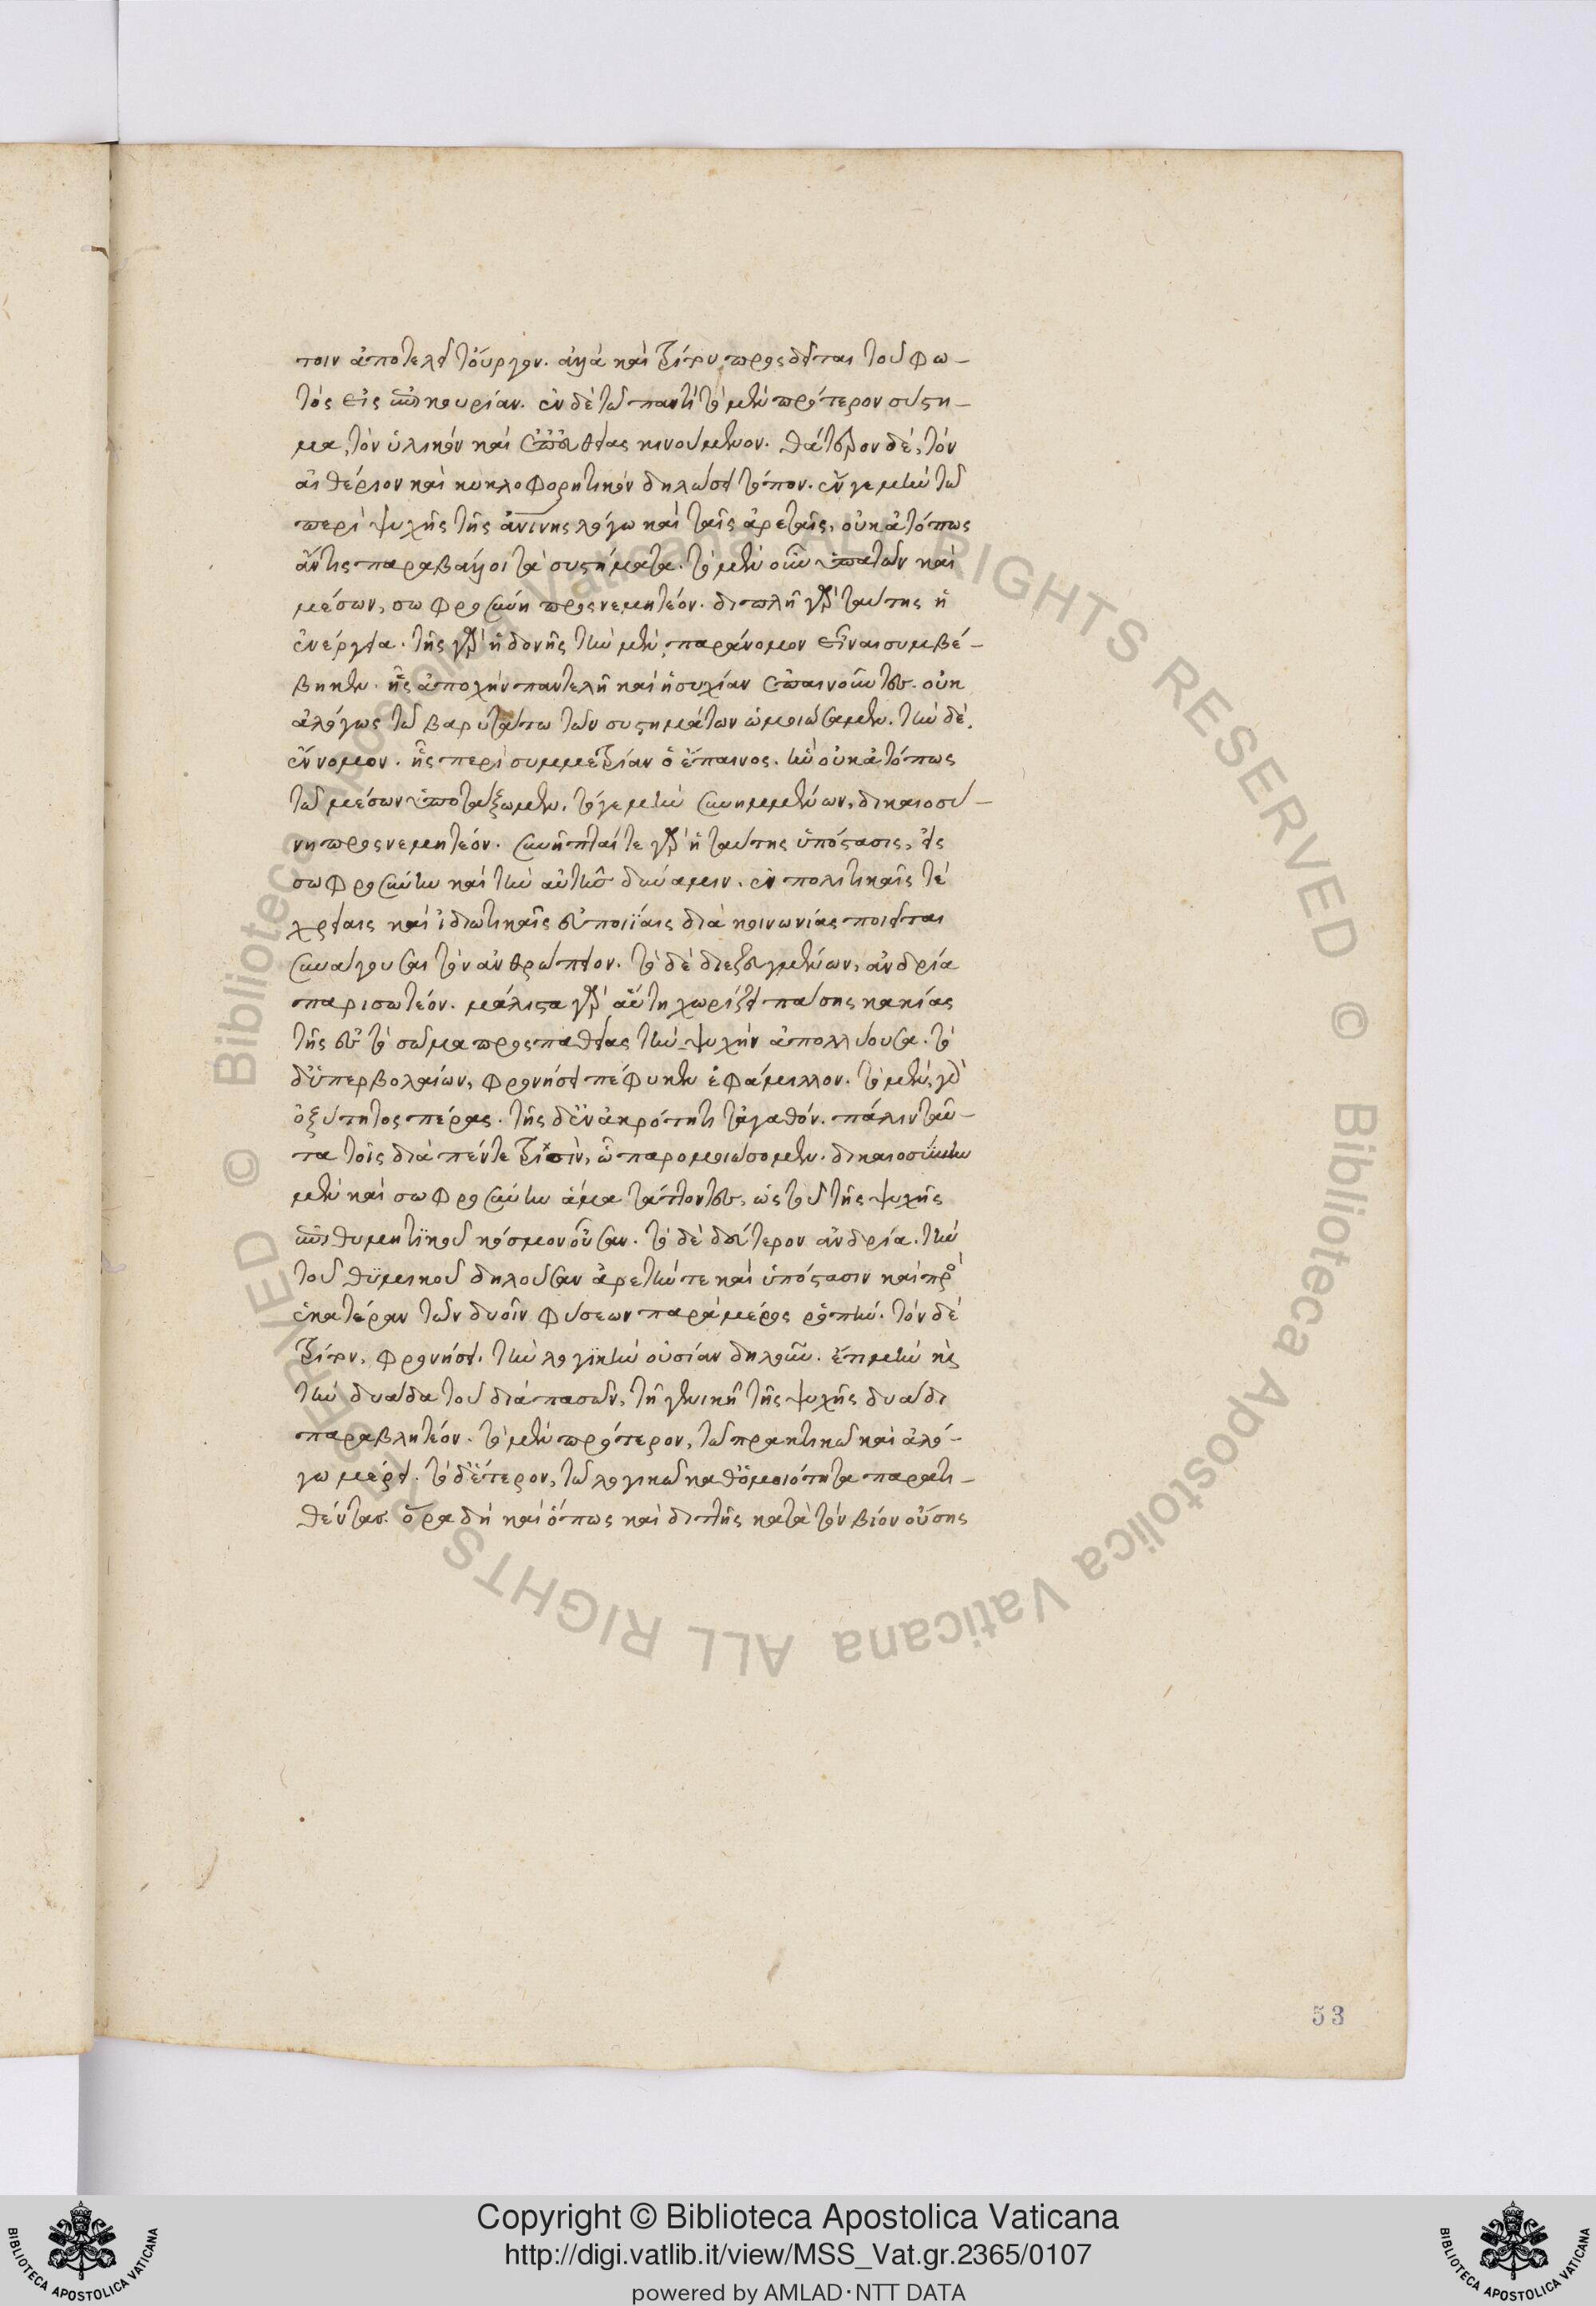 ποιν ἀποτελεῖ τοὖργον. ἀλλὰ καὶ τρίτου προσδεῖται τοῦ φω-
τὸς εἰς ἐπικουρίαν. ἐν δὲ τῷ παντὶ τὸ μὲν πρότερον σύστη-
μα, τὸν ὑλικὸν καὶ ἐπ' εὐθείας κινούμενον. θάτερον δὲ, τὸν
αἰθέριον καὶ κυκλοφορητικὸν δηλώσει τόπον. ἔν γε μὴν τῷ
περὶ ψυχῆς τῆς ἀνινης λόγω καὶ ταῖς ἀρεταῖς, οὐκ ἀτόπως
ἄν τις παραβάλλοι τὰ συστήματα. τὸ μὲν οὖν ὑπατῶν καὶ
μέσων, σωφροσύνη προσνεμητέον. διπλῆ γὰρ ταύτης ἡ
ἐνέργεια. τῆς γὰρ ἡδονῆς τὴν μὲν, παράνομον εἶναι συμβέ-
βηκεν. ἧς ἀποχὴν παντελῆ καὶ ἡσυχίαν ἐπαινοῦντες. οὐκ
ἀλόγως τῷ βαρυτάτω τῶν συστημάτων ὡμοιώσαμεν. τὴν δὲ,
ἔννομον. ἧς περὶ συμμετρίαν ὁ ἔπαινος. ἣν οὐκ ἀτόπως
τῷ μέσων ὑποτάξωμεν. τό γε μὴν συνημμένων, δικαιοσύ-
νη προσνεμητέον. συνῆπταί τε γὰρ ἡ ταύτης ὑπόστασις, εἰς
σωφροσύνην καὶ τὴν αὐτῆς δύναμιν. ἐν πολιτικαῖς τὲ
χρείαις καὶ ἰδιωτικαῖς εὐποιΐαις διὰ κοινωνίας ποιεῖται
συνάγουσαι τὸν ἀνθρώπειον. τὸ δὲ διεζευγμένων, ἀνδρία
παρισωτέον. μάλιστα γὰρ αὕτη χωρίζει πάσης κακίας
τῆς εἰς τὸ σῶμα προσπαθείας τὴν ψυχὴν ἀπολλύουσα. τὸ
δ' ὑπερβολαίων, φρονήσει πέφυκεν ἐφάμιλλον. τὸ μὲν γὰρ
ὀξύτητος πέρας. τῆς δ' ἐν ἀκρότητι τἀγαθόν. πάλιν ταῦ-
τα τοῖς διὰ πέντε τρισὶν, ὧ παρομοιώσομεν. δικαιοσύνην
μὲν καὶ σωφροσύνην ἅμα τάττοντες, ὡς τοῦ τῆς ψυχῆς
ἐπιθυμητϊκοῦ κόσμον οὖσαν. τὸ δὲ δεύτερον ἀνδρία. τὴν
τοῦ θϋμικοῦ δηλοῦσαν ἀρετὴν τε καὶ ὑπόστασιν καὶ πρὸς
ἑκατέραν τῶν δυοῖν φύσεων παρὰ μέρος ῥοπήν. τὸν δὲ
τρίτον, φρονήσει. τὴν λογϊκὴν οὐσίαν δηλοῦν. ἔτι μὴν καὶ
τὴν δυάδα τοῦ διὰ πασῶν, τῇ γενικῇ τῆς ψυχῆς δυάδι
παραβλητέον. τὸ μὲν πρότερον, τῷ πρακτικῷ καὶ ἀλό-
γω μέρει. τὸ δ' ἕτερον, τῷ λογικῷ καθ' ὁμοιότητα παρατι-
θέντας. ὅρα δὴ καὶ ὅπως καὶ διττῆς κατὰ τὸν βίον οὔσης
53
Copyright © Biblioteca Apostolica Vaticana
http://digi.vatlib.it/view/MSS_Vat.gr.2365/0107
powered by AMLAD·NTT DATA